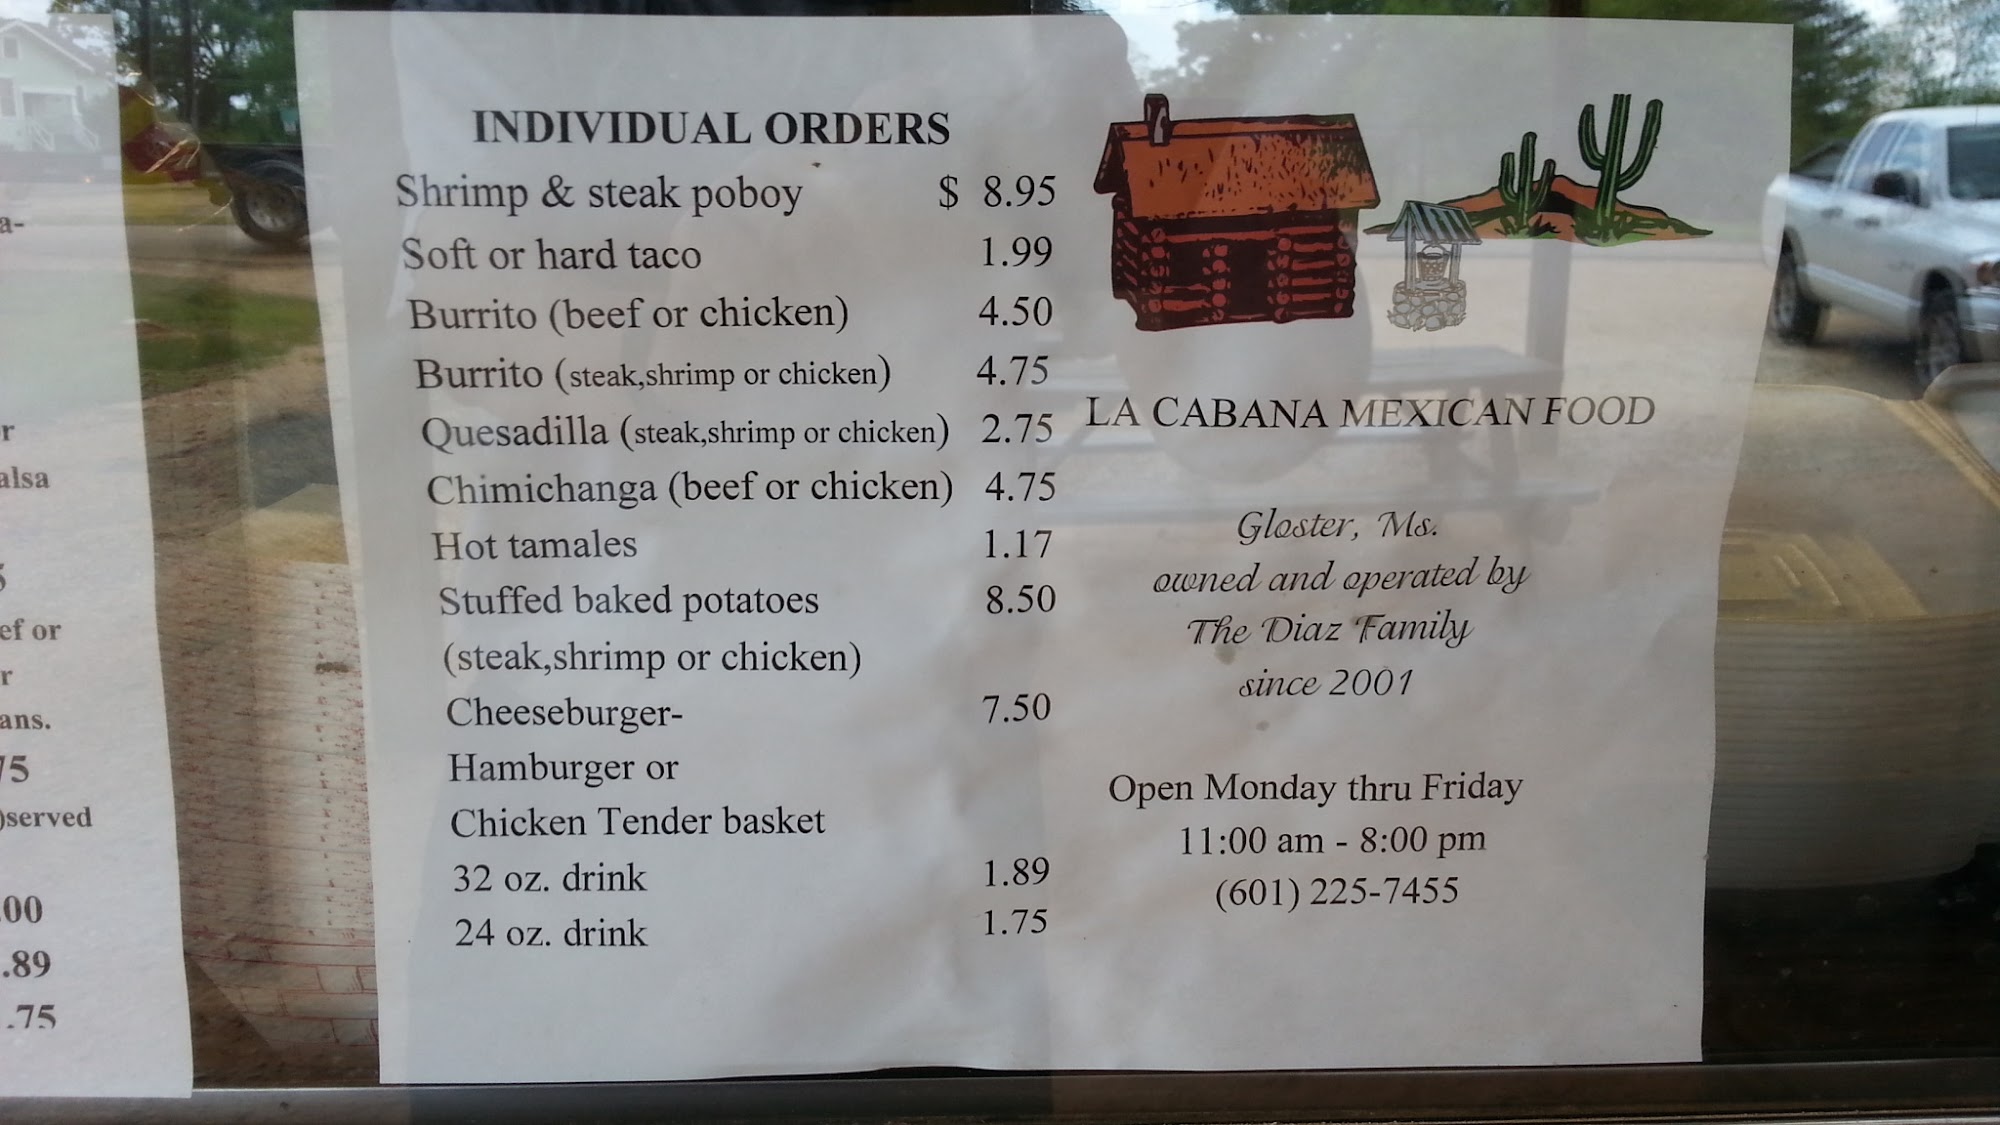 INDIVIDUAL ORDERS
Shrimp & steak poboy $ 8.95
Soft or hard taco 1.99
Burrito (beef or chicken) 4.50
Burrito (steak,shrimp or chicken) 4.75
Quesadilla (steak,shrimp or chicken) 2.75
Chimichanga (beef or chicken) 4.75
Hot tamales 1.17
Stuffed baked potatoes 8.50
(steak,shrimp or chicken)
Cheeseburger- 7.50
Hamburger or
Chicken Tender basket
32 oz. drink 1.89
24 oz. drink 1.75
LA CABANA MEXICAN FOOD
Gloster, Ms.
owned and operated by
The Diaz Family
since 2001
Open Monday thru Friday
11:00 am - 8:00 pm
(601) 225-7455
a-
r
alsa
5
ef or
r
ans.
75
)served
.00
.89
.75